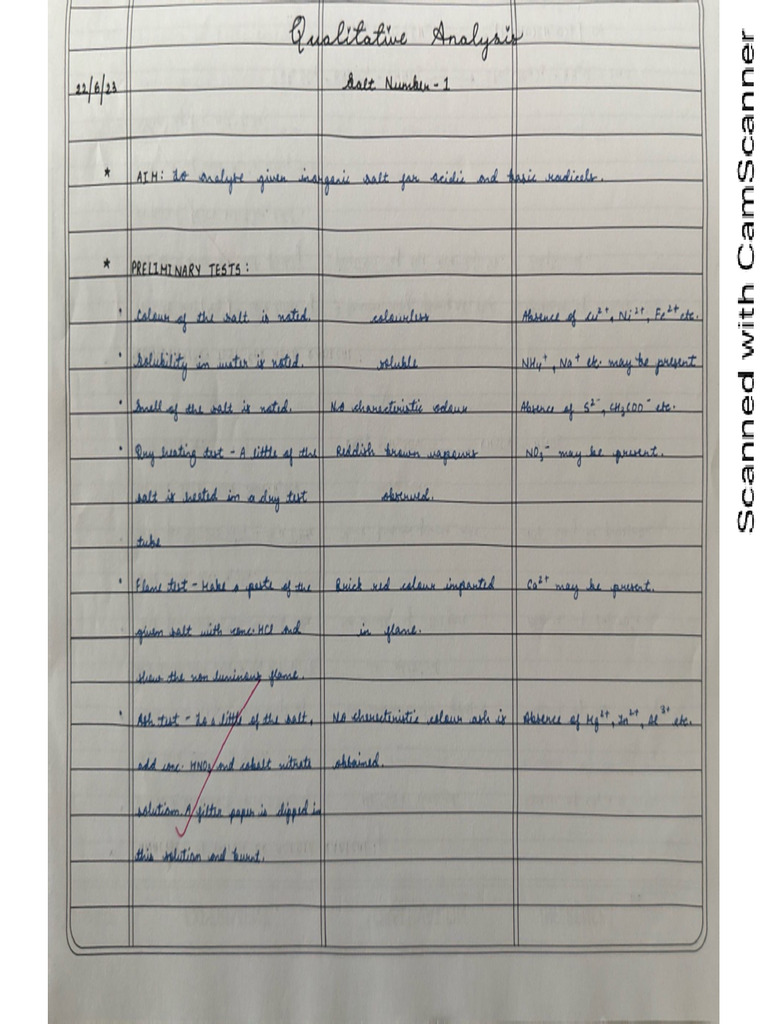 Qualitative Analysis
22/6/23 Salt Number - 1
* AIM: To analyse given inorganic salt for acidic and basic radicals.
* PRELIMINARY TESTS:
• Colour of the salt is noted. colourless Absence of Cu²⁺, Ni²⁺, Fe²⁺ etc.
• Solubility in water is noted. soluble NH₄⁺, Na⁺ etc. may be present
• Smell of the salt is noted. No characteristic odour Absence of S²⁻, CH₃COO⁻ etc.
• Dry heating test - A little of the Reddish brown vapours NO₃⁻ may be present.
salt is heated in a dry test observed.
tube
• Flame test - Make a paste of the Brick red colour imparted Ca²⁺ may be present.
given salt with conc. HCl and in flame.
show the non luminous flame.
• Ash test - To a little of the salt, No charecteristic colour ash is Absence of Mg²⁺, Zn²⁺, Al³⁺ etc.
add conc. HNO₃ and cobalt nitrate obtained.
solution. A filter paper is dipped in
this solution and burnt.
Scanned with CamScanner